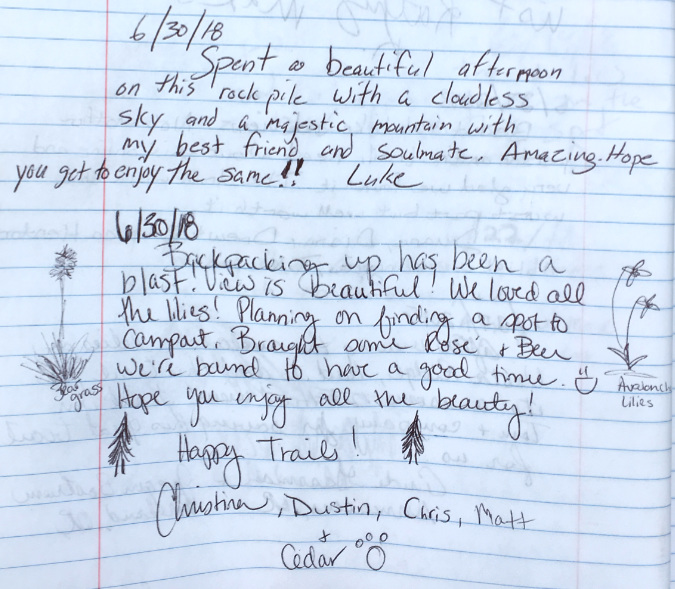 6/30/18
Spent a beautiful afternoon
on this rock pile with a cloudless
sky and a majestic mountain with
my best friend and soulmate. Amazing. Hope
you get to enjoy the same!! Luke
6/30/18
Backpacking up has been a
blast. View is beautiful! We loved all
the lilies! Planning on finding a spot to
campout. Brought some Rosé + Beer
We're bound to have a good time.
Hope you enjoy all the beauty!
Happy Trails!
Christina, Dustin, Chris, Matt
+
Cedar
bear
grass
Avalanch
Lilies